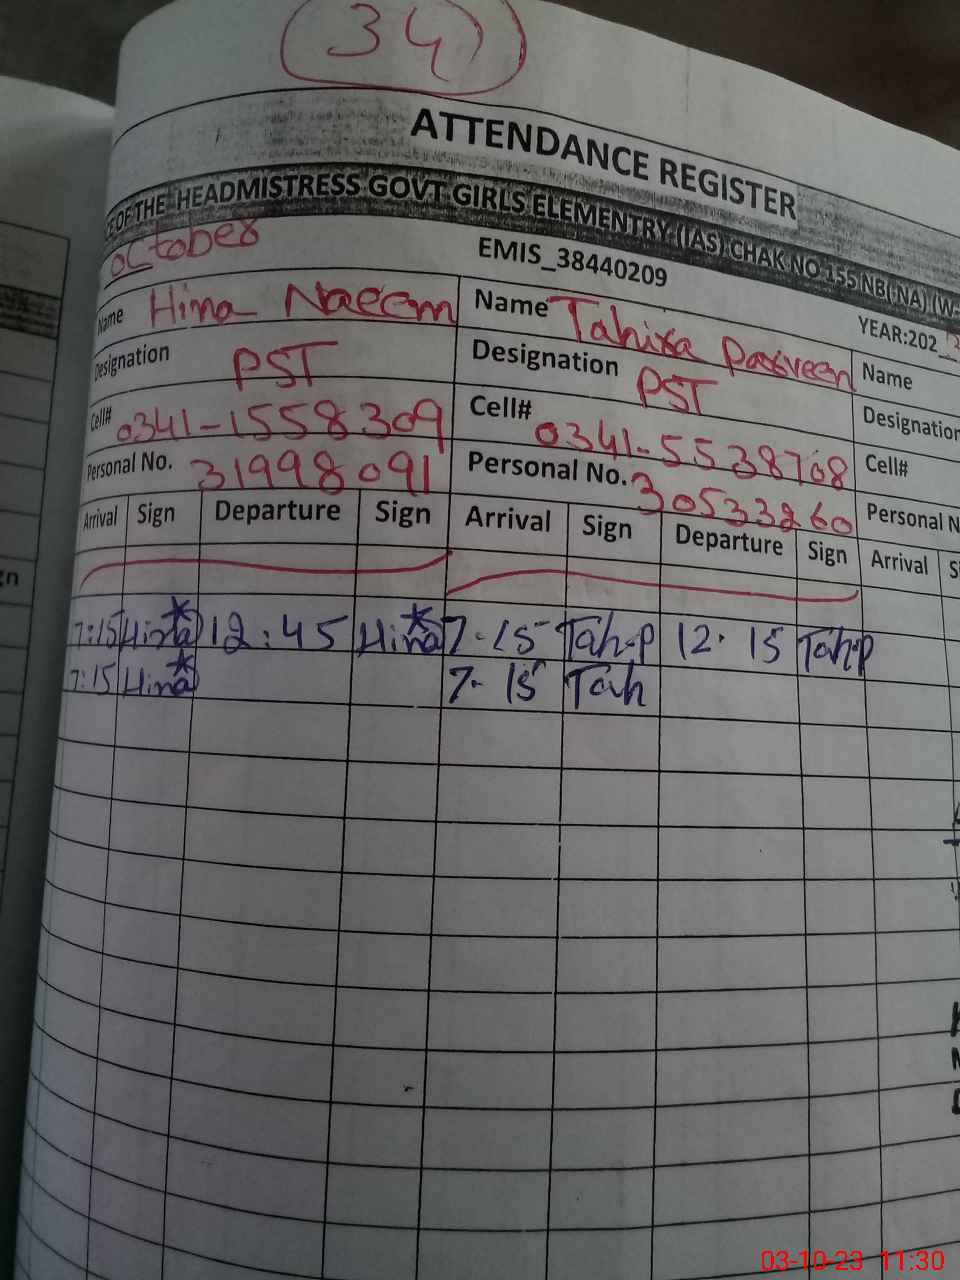 34
ATTENDANCE REGISTER
CE OF THE HEADMISTRESS GOVT GIRLS ELEMENTRY (IAS) CHAK NO 155 NB( NA) (W-
October EMIS_38440209 YEAR:202
Name Hina Naeem Name Tahira Parveen Name
Designation PST Designation PST Designation
Cell# 0341-1558309 Cell# 0341-5538708 Cell#
Personal No. 31998091 Personal No. 30533260 Personal N
Arrival Sign Departure Sign Arrival Sign Departure Sign Arrival S
7:15 Hina 12:45 Hina 7-15 Tah-P 12.15 Tah-P
7:15 Hina 7-15 Tah
03-10-23 11:30